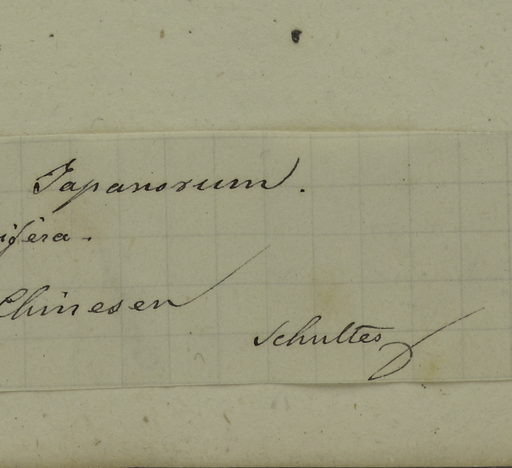 Japanorum.
ifera.
Chinesen
Schultes